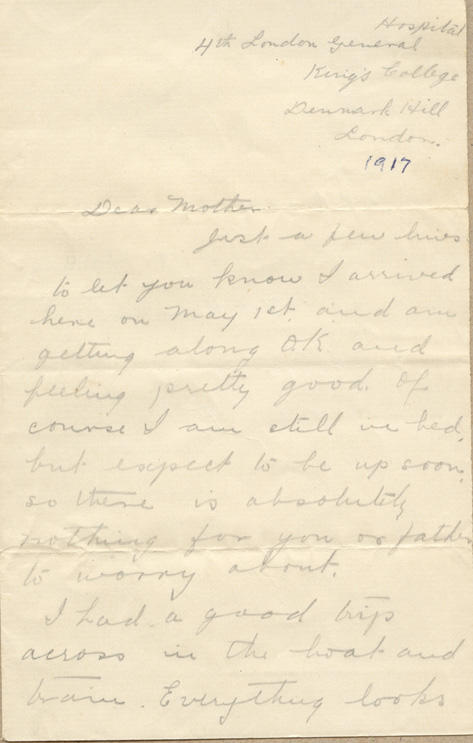 Hospital
4th London General
King's College
Denmark Hill
London.
1917
Dear Mother
Just a few lines
to let you know I arrived
here on May 1st. and am
getting along O.K. and
feeling pretty good. Of
course I am still in bed,
but expect to be up soon,
so there is absolutely
nothing for you or father
to worry about.
I had a good trip
across in the boat and
train. Everything looks